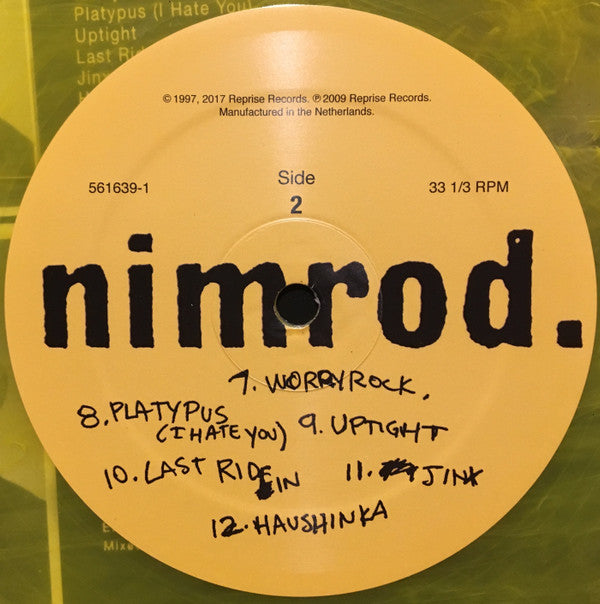 Platypus (I Hate You)
Uptight
Last Rid
Jinx
© 1997, 2017 Reprise Records. ℗ 2009 Reprise Records.
Manufactured in the Netherlands.
561639-1
Side
2
33 1/3 RPM
nimrod.
7. WORRY ROCK,
8. PLATYPUS
(I HATE YOU)
9. UPTIGHT
10. LAST RIDE IN
11. JINX
12. HAUSHINKA
Mixe